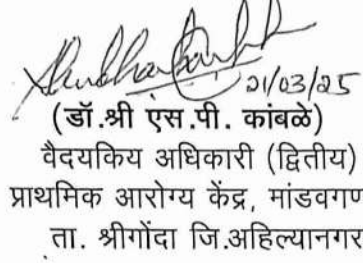 21/03/25
(डॉ.श्री एस.पी. कांबळे)
वैदयकिय अधिकारी (द्वितीय)
प्राथमिक आरोग्य केंद्र, मांडवगण
ता. श्रीगोंदा जि.अहिल्यानगर